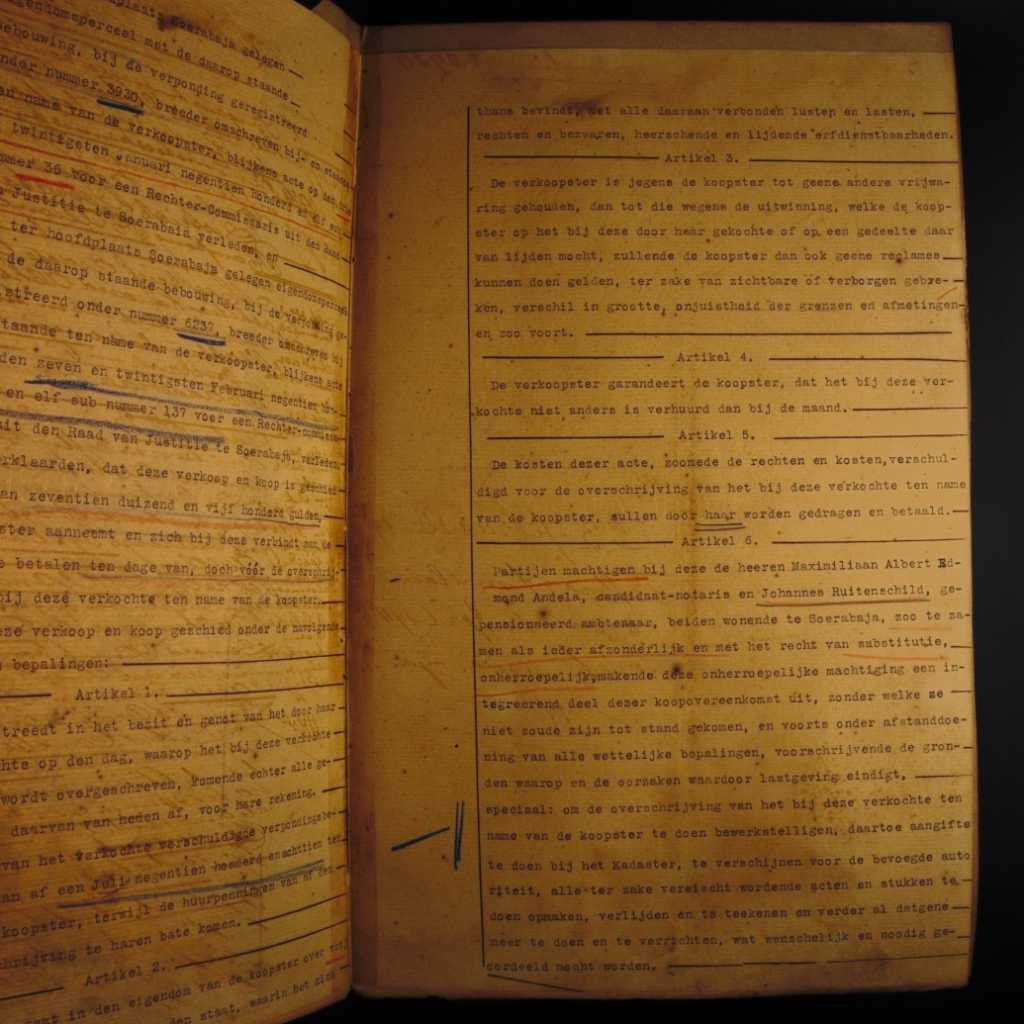 plaats Soerabaja gelegen
eigendomsperceel met de daarop staande
bebouwing, bij de verponding geregistreerd
onder nummer 3930, breeder omschreven bij- en staande
ten name van de verkoopster, blijkens acte op den
twintigsten Januari negentien honderd en elf sub
nummer 36 voor een Rechter-Commissaris uit den Raad
van Justitie te Soerabaia verleden, en
ter hoofdplaats Soerabaja gelegen eigendomsperceel
de daarop staande bebouwing, bij de verponding ge-
istreerd onder nummer 6232, breeder omschreven bij
staande ten name van de verkoopster, blijkens acte
den zeven en twintigsten Februari negentien hon-
en elf sub nummer 137 voor een Rechter-commissaris
uit den Raad van Justitie te Soerabaja, verleden,
erklaarden, dat deze verkoop en koop is geschied
an zeventien duizend en vijf honderd gulden,
ster aanneemt en zich bij deze verbindt aan de
e betalen ten dage van, doch vóór de overschrij-
bij deze verkochte ten name van de koopster.
eze verkoop en koop geschied onder de navolgende
bepalingen:
Artikel 1.
treedt in het bezit en genot van het door haar
hte op den dag, waarop het bij deze verkochte
wordt overgeschreven, komende echter alle ge-
daarvan van heden af, voor hare rekening.
van het verkochte verschuldigde verpondingsbe-
an af een Juli negentien honderd en achttien ten
koopster, terwijl de huurpenningen van af den
chrijving te haren bate komen.
Artikel 2.
gaat in den eigendom van de koopster over met
den staat, waarin het zich
thans bevindt, met alle daaraan verbonden lusten en lasten,
rechten en bezwaren, heerschende en lijdende erfdienstbaarheden.
Artikel 3.
De verkoopster is jegens de koopster tot geene andere vrijwa-
ring gehouden, dan tot die wegens de uitwinning, welke de koop-
ster op het bij deze door haar gekochte of op een gedeelte daar
van lijden mocht, zullende de koopster dan ook geene reclames
kunnen doen gelden, ter zake van zichtbare of verborgen gebre-
ken, verschil in grootte, onjuistheid der grenzen en afmetingen
en zoo voort.
Artikel 4.
De verkoopster garandeert de koopster, dat het bij deze ver-
kochte niet anders is verhuurd dan bij de maand.
Artikel 5.
De kosten dezer acte, zoomede de rechten en kosten, verschul-
digd voor de overschrijving van het bij deze verkochte ten name
van de koopster, zullen door haar worden gedragen en betaald.
Artikel 6.
Partijen machtigen bij deze de heeren Maximiliaan Albert Ed-
mond Andela, candidaat-notaris en Johannes Ruitenschild, ge-
pensionneerd ambtenaar, beiden wonende te Soerabaja, zoo te za-
men als ieder afzonderlijk en met het recht van substitutie,
onherroepelijk, makende deze onherroepelijke machtiging een in-
tegreerend deel dezer koopovereenkomst uit, zonder welke ze
niet zoude zijn tot stand gekomen, en voorts onder afstanddoe-
ning van alle wettelijke bepalingen, voorschrijvende de gron-
den waarop en de oorzaken waardoor lastgeving eindigt,
speciaal: om de overschrijving van het bij deze verkochte ten
name van de koopster te doen bewerkstelligen, daartoe aangifte
te doen bij het Kadaster, te verschijnen voor de bevoegde auto
riteit, alle ter zake vereischt wordende acten en stukken te
doen opmaken, verlijden en te teekenen en verder al datgene
meer te doen en te verrichten, wat wenschelijk en noodig ge-
oordeeld mocht worden.